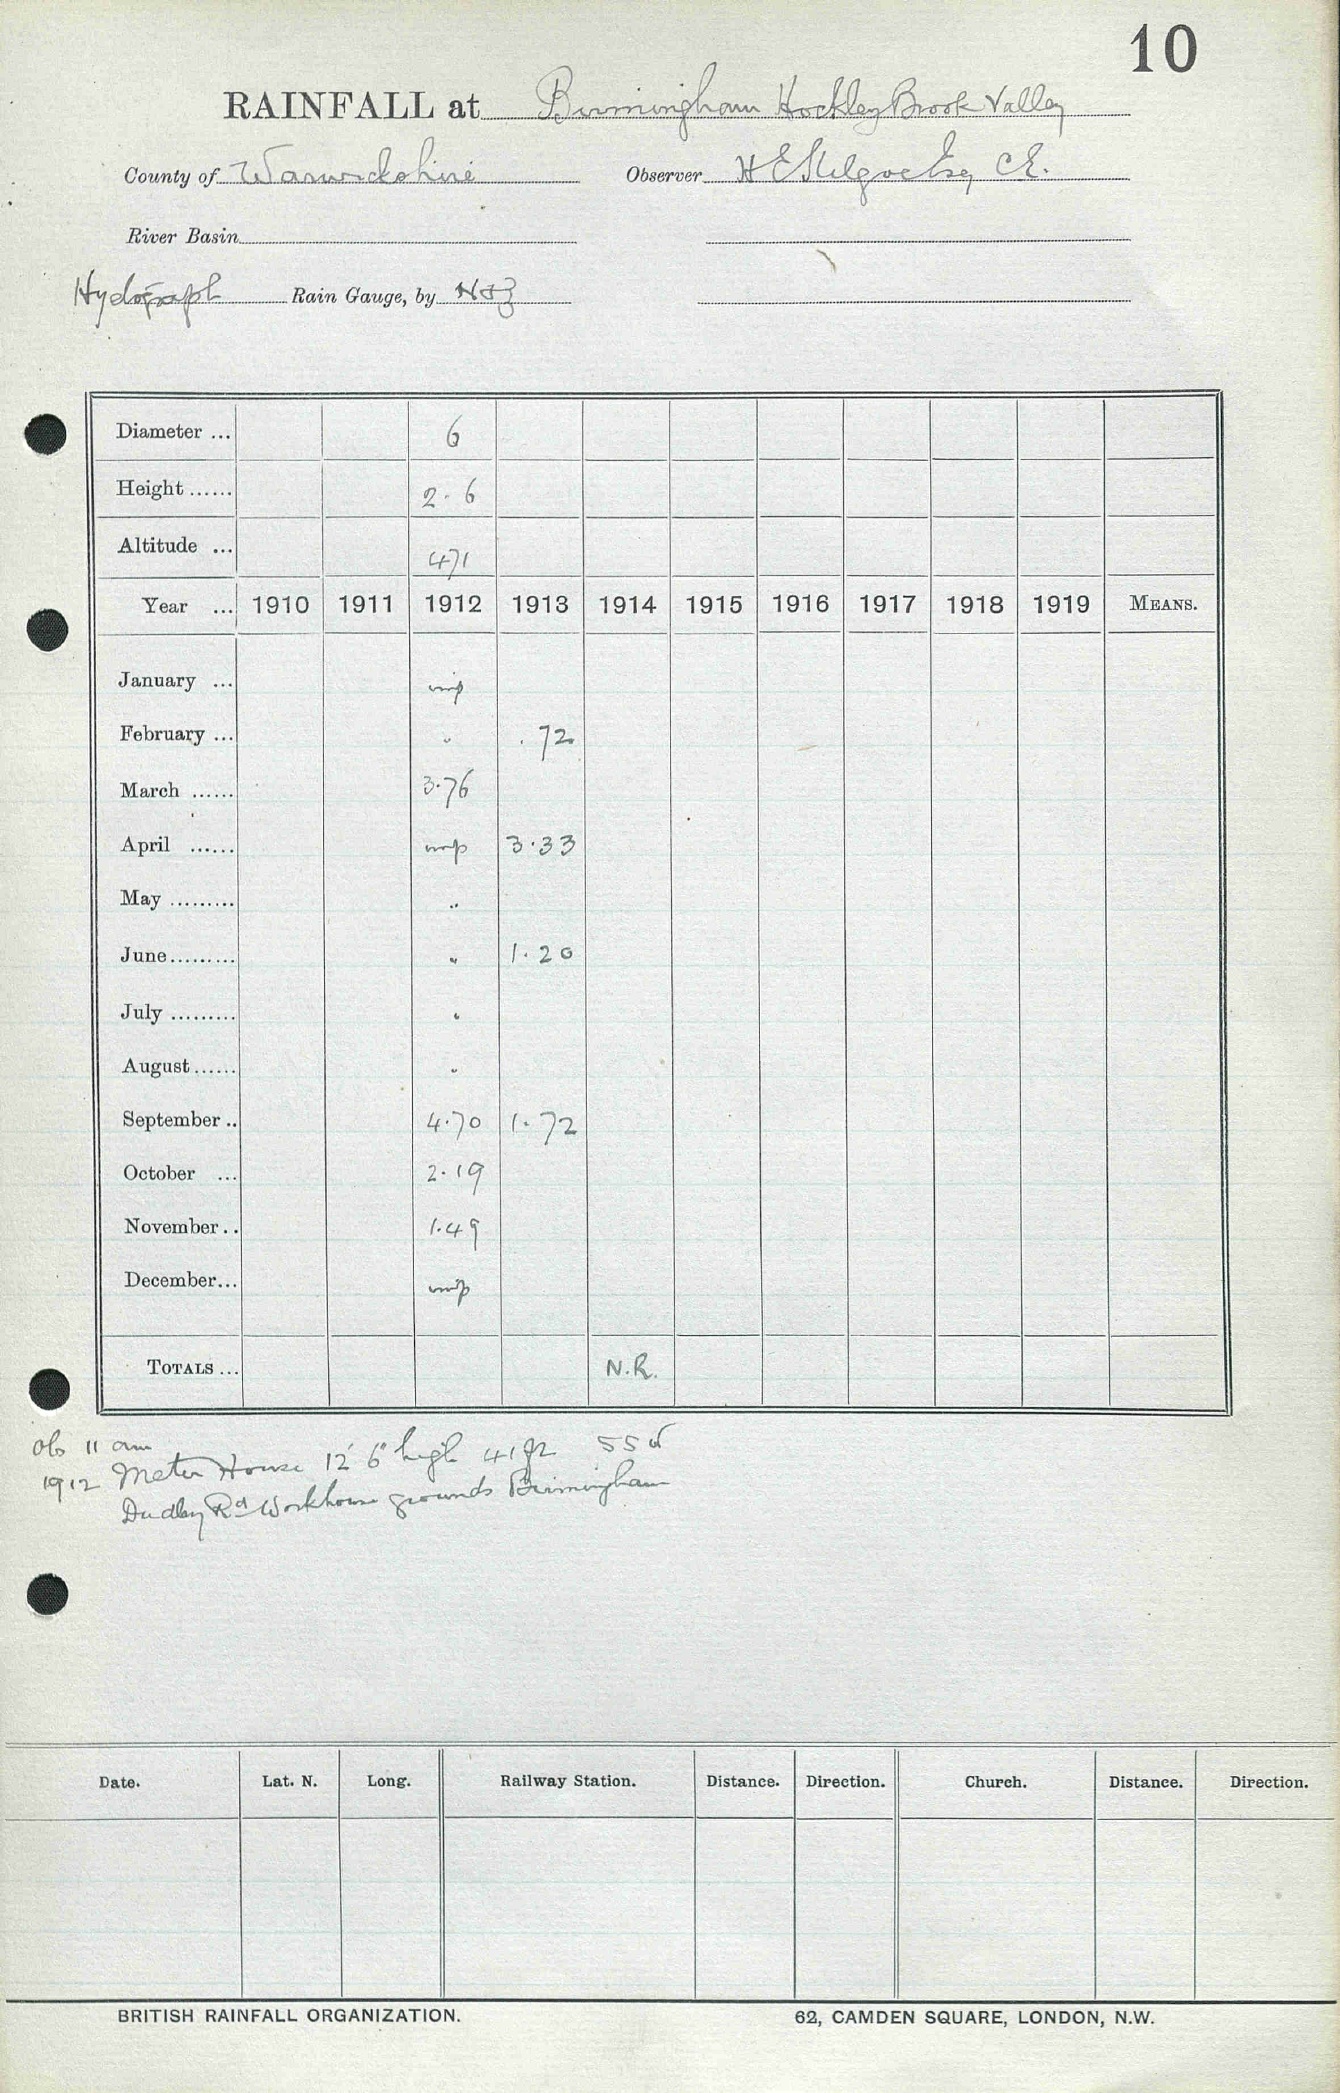 10
RAINFALL at Birmingham Hockley Brook Valley
County of Warwickshire Observer H E Stilgoe Esq C.E.
River Basin
Hydograph Rain Gauge, by N & Z
Diameter ... 6
Height ...... 2 - 6
Altitude ... 471
Year ... 1910 1911 1912 1913 1914 1915 1916 1917 1918 1919 MEANS.
January ... imp
February ... " .72
March ...... 3.76
April ...... imp 3.33
May ......... "
June ......... " 1.20
July ......... "
August ...... "
September .. 4.70 1.72
October ... 2.19
November .. 1.49
December ... imp
TOTALS ... N.R.
ob 11 am
1912 Meter House 12' 6" high 41 ft 55
Dudley Rd Workhouse grounds Birmingham
Date. Lat. N. Long. Railway Station. Distance. Direction. Church. Distance. Direction.
BRITISH RAINFALL ORGANIZATION. 62, CAMDEN SQUARE, LONDON, N.W.